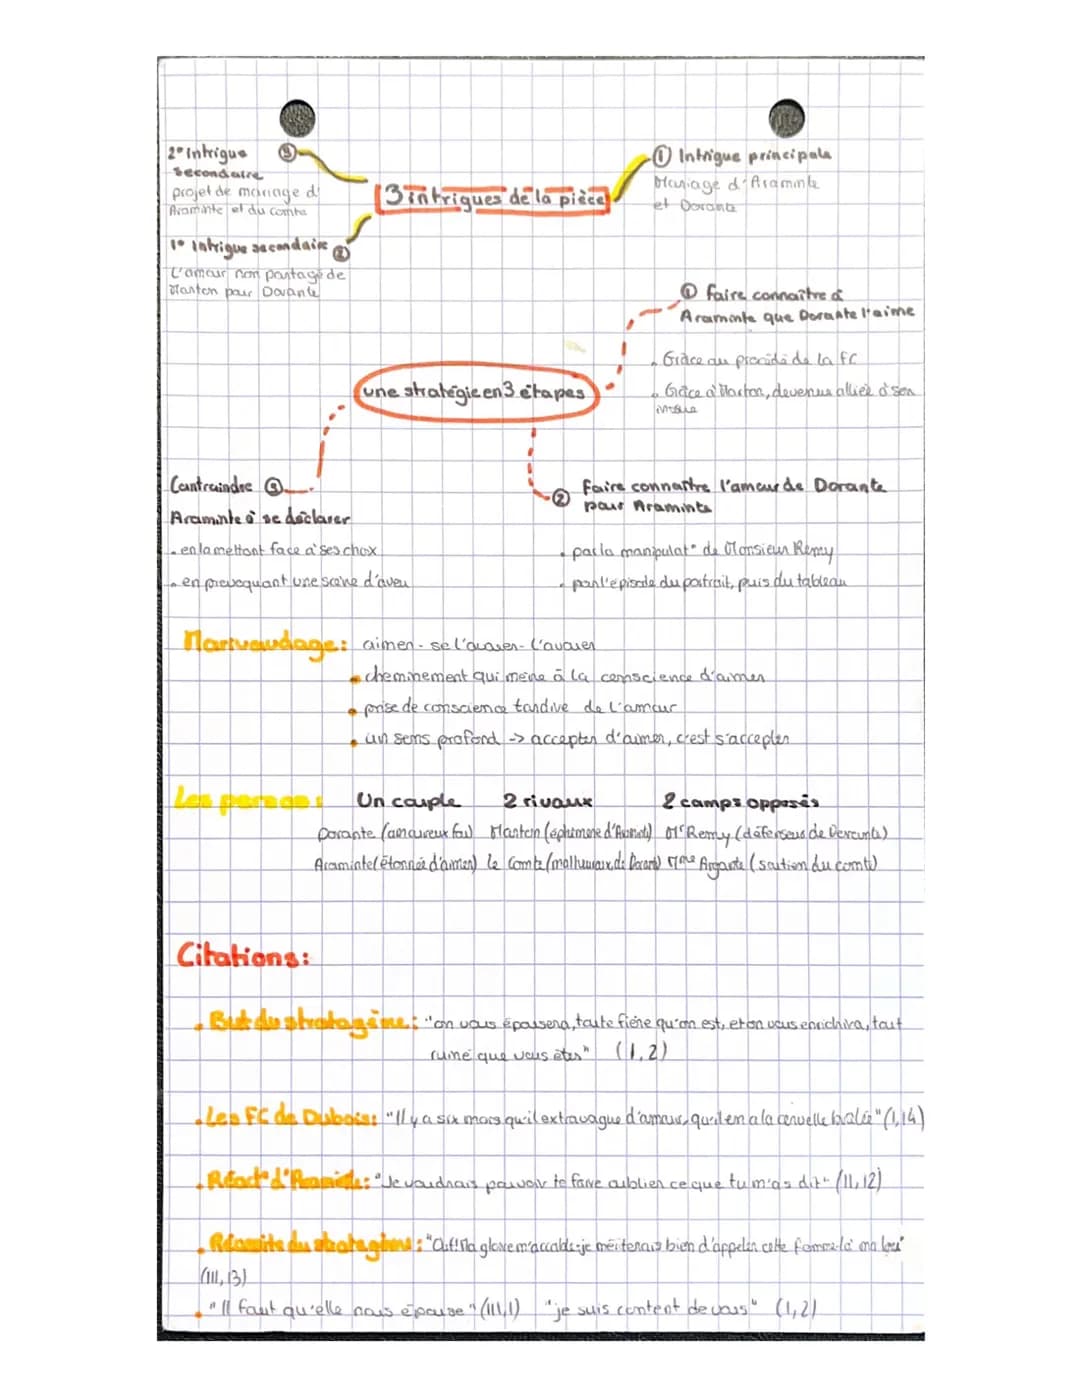 2° Intrigue ③
secondaire
projet de mariage d'
Araminte et du comte
3 intrigues de la pièce
① Intrigue principale
Mariage d'Araminte
et Dorante
1° Intrigue secondaire ②
L'amour non partagé de
Marton pour Dorante
① Faire connaître à
Araminte que Dorante l'aime
. Grâce au procédé de la FC
. Grâce à Marton, devenue alliée à son
une stratégie en 3 étapes
Contraindre ③
Araminte à se déclarer
. en la mettant face à ses choix
. en provoquant une scène d'aveu
② Faire connaître l'amour de Dorante
pour Araminte
. par la manipulat° de Monsieur Remy
. par l'épisode du portrait, puis du tableau
Marivaudage : aimer - se l'avouer - l'avouer
• cheminement qui mène à la conscience d'aimer
• prise de conscience tardive de l'amour
• un sens profond -> accepter d'aimer, c'est s'accepter
Les persos : Un couple 2 rivaux 2 camps opposés
Dorante (amoureux fou) Marton (éphémère d'Aramte) Mr Remy (défenseur de Dorante)
Araminte (étonnée d'aimer) le Comte (malheureux de Dorant) Mme Argante (soutien du comte)
Citations :
. But du stratagème : "on vous épousera, toute fière qu'on est, et on vous enrichira, tout
ruiné que vous êtes" (1,2)
. Les FC de Dubois : "Il y a six mois qu'il extravague d'amour, qu'il en a la cervelle brûlée" (1,14)
. Réact° d'Araminte : "Je voudrais pouvoir te faire oublier ce que tu m'as dit" (11,12)
. Réussite du stratagème : "Ouf! Ma gloire m'accable : je mériterais bien d'appeler cette femme-là ma bru"
(111,13)
. "Il faut qu'elle nous épouse" (111,1) "je suis content de vous" (1,2)